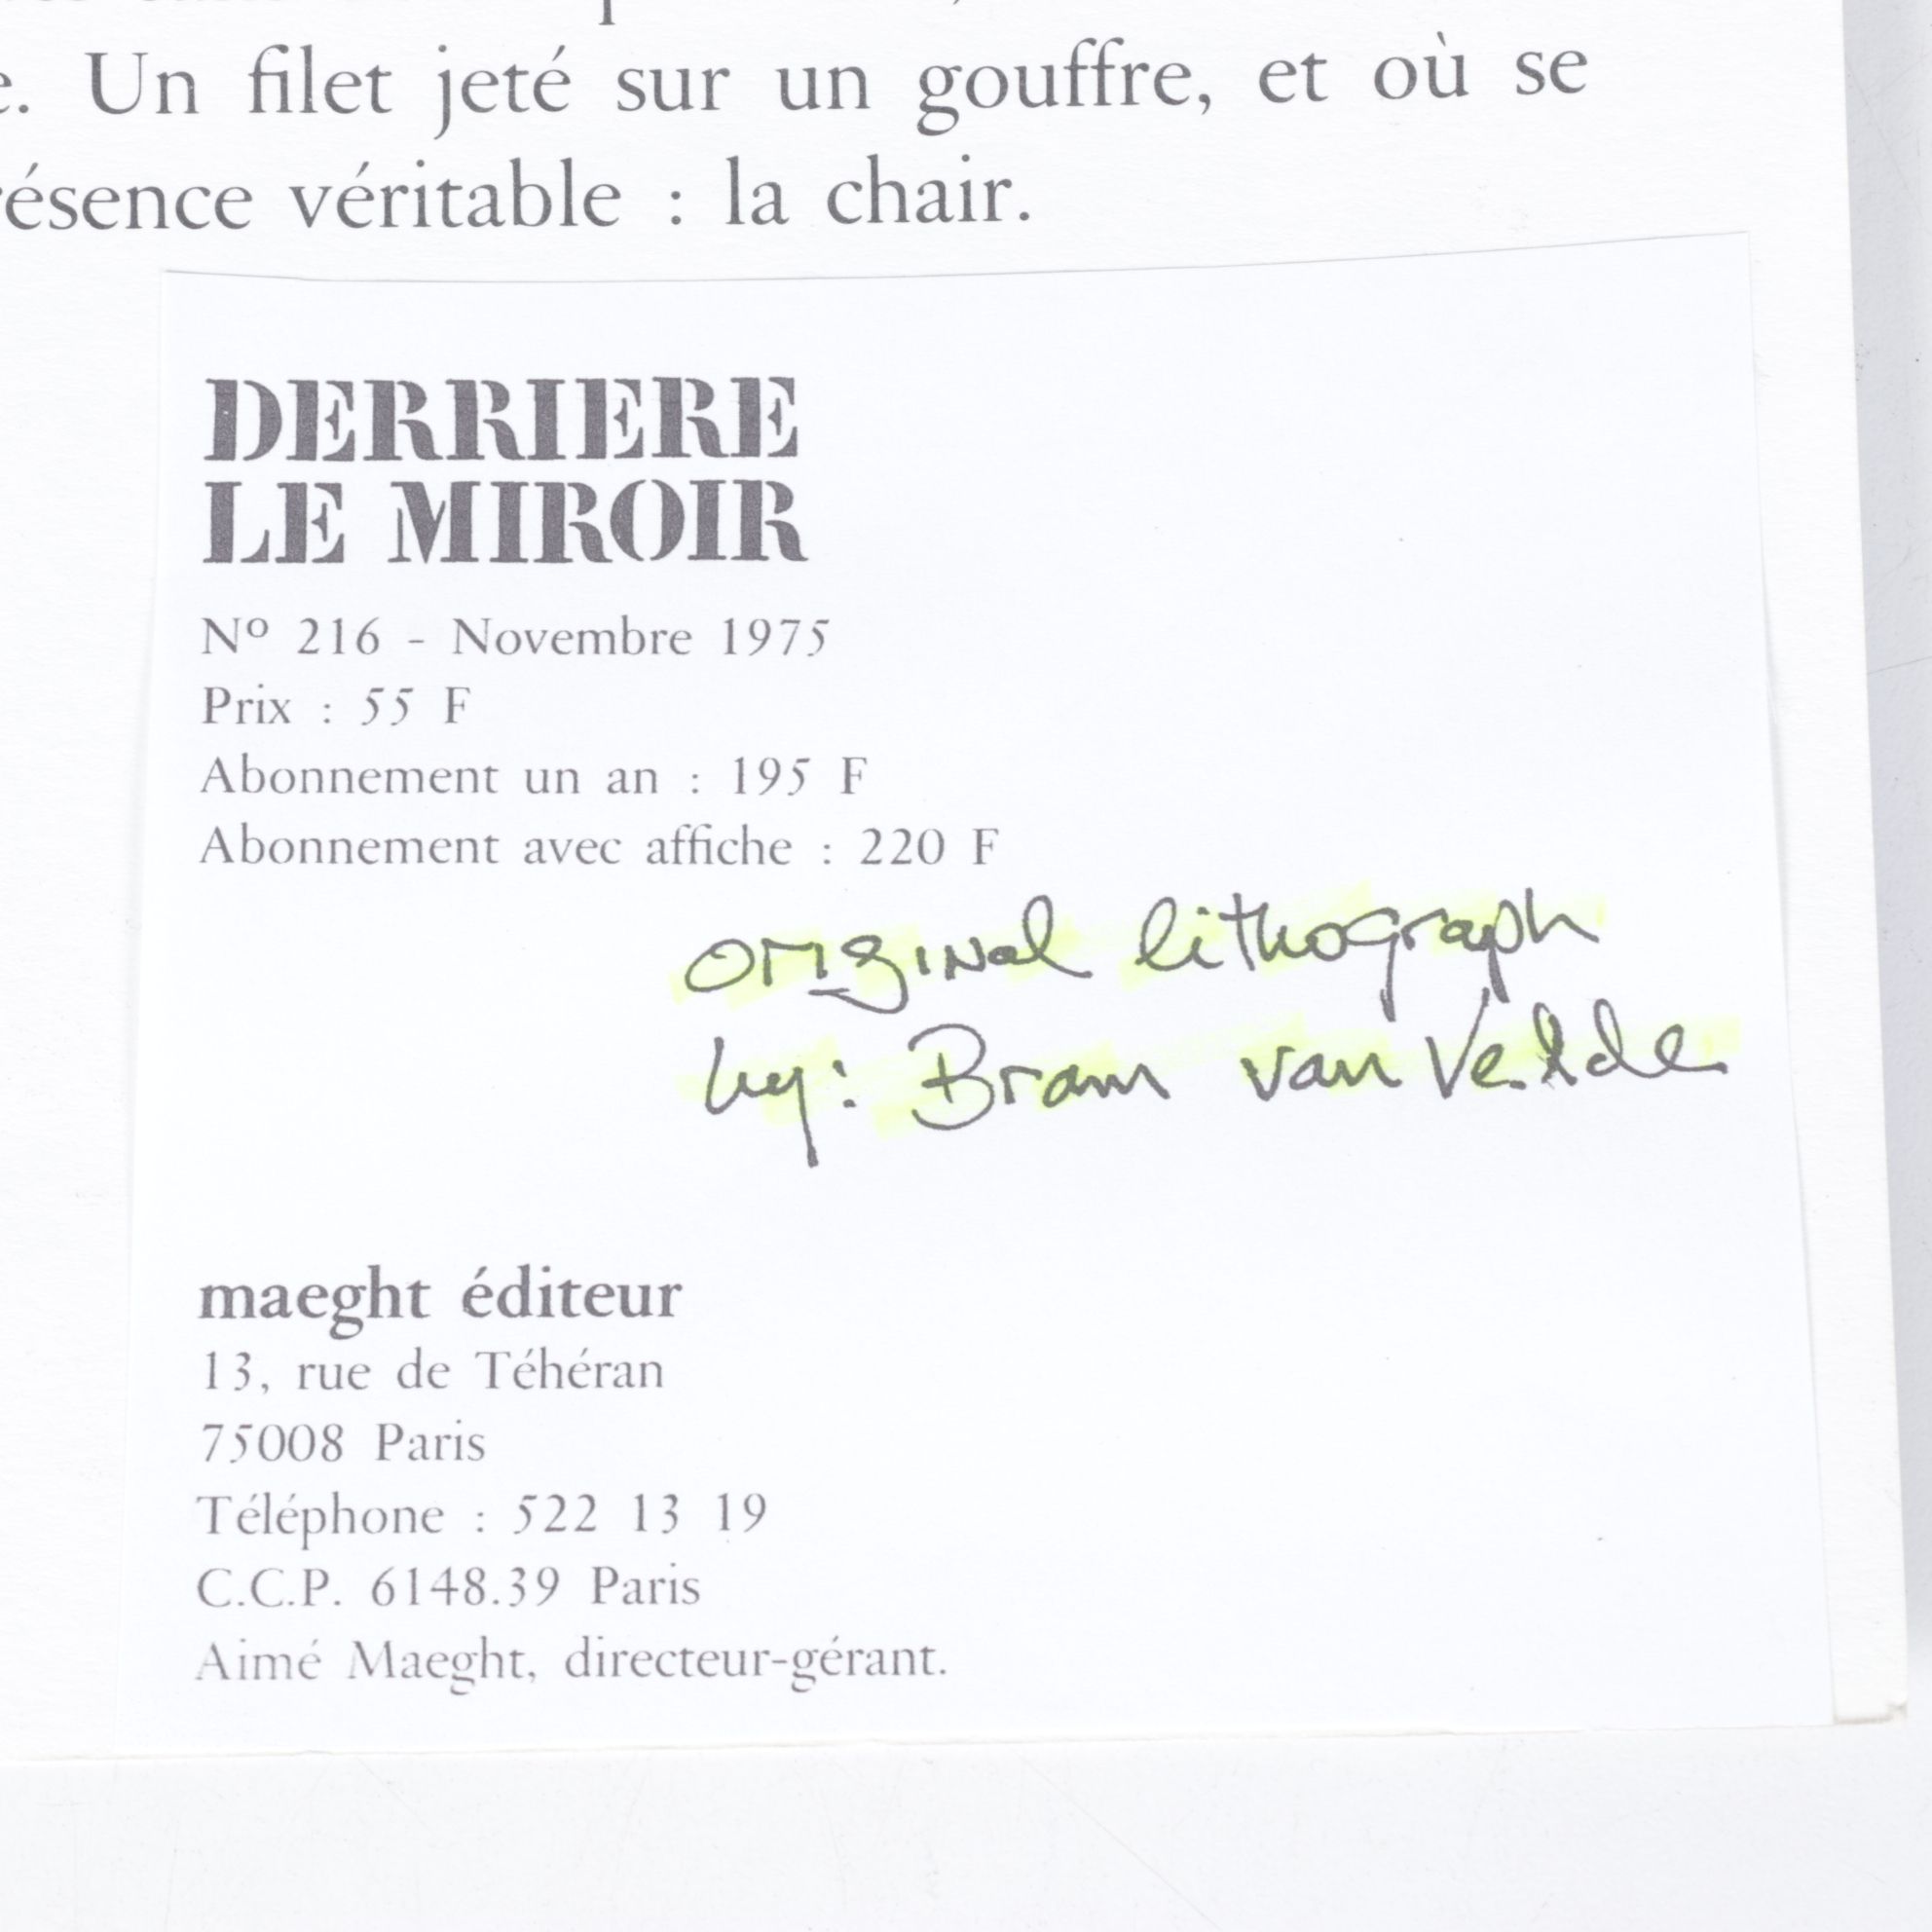 e. Un filet jeté sur un gouffre, et où se
résence véritable : la chair.
DERRIERE
LE MIROIR
Nº 216 - Novembre 1975
Prix : 55 F
Abonnement un an : 195 F
Abonnement avec affiche : 220 F
original lithograph
by: Bram van Velde
maeght éditeur
13, rue de Téhéran
75008 Paris
Téléphone : 522 13 19
C.C.P. 6148.39 Paris
Aimé Maeght, directeur-gérant.